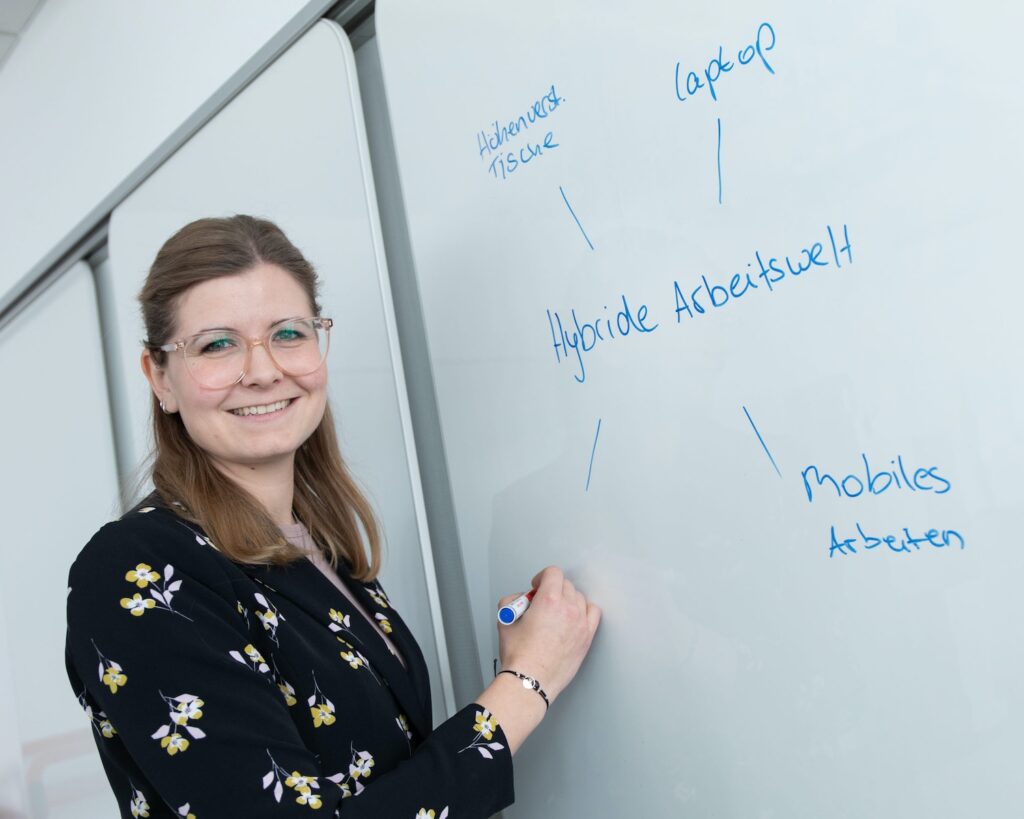 Laptop
Höhenverst.
Tische
Hybride Arbeitswelt
Mobiles
Arbeiten